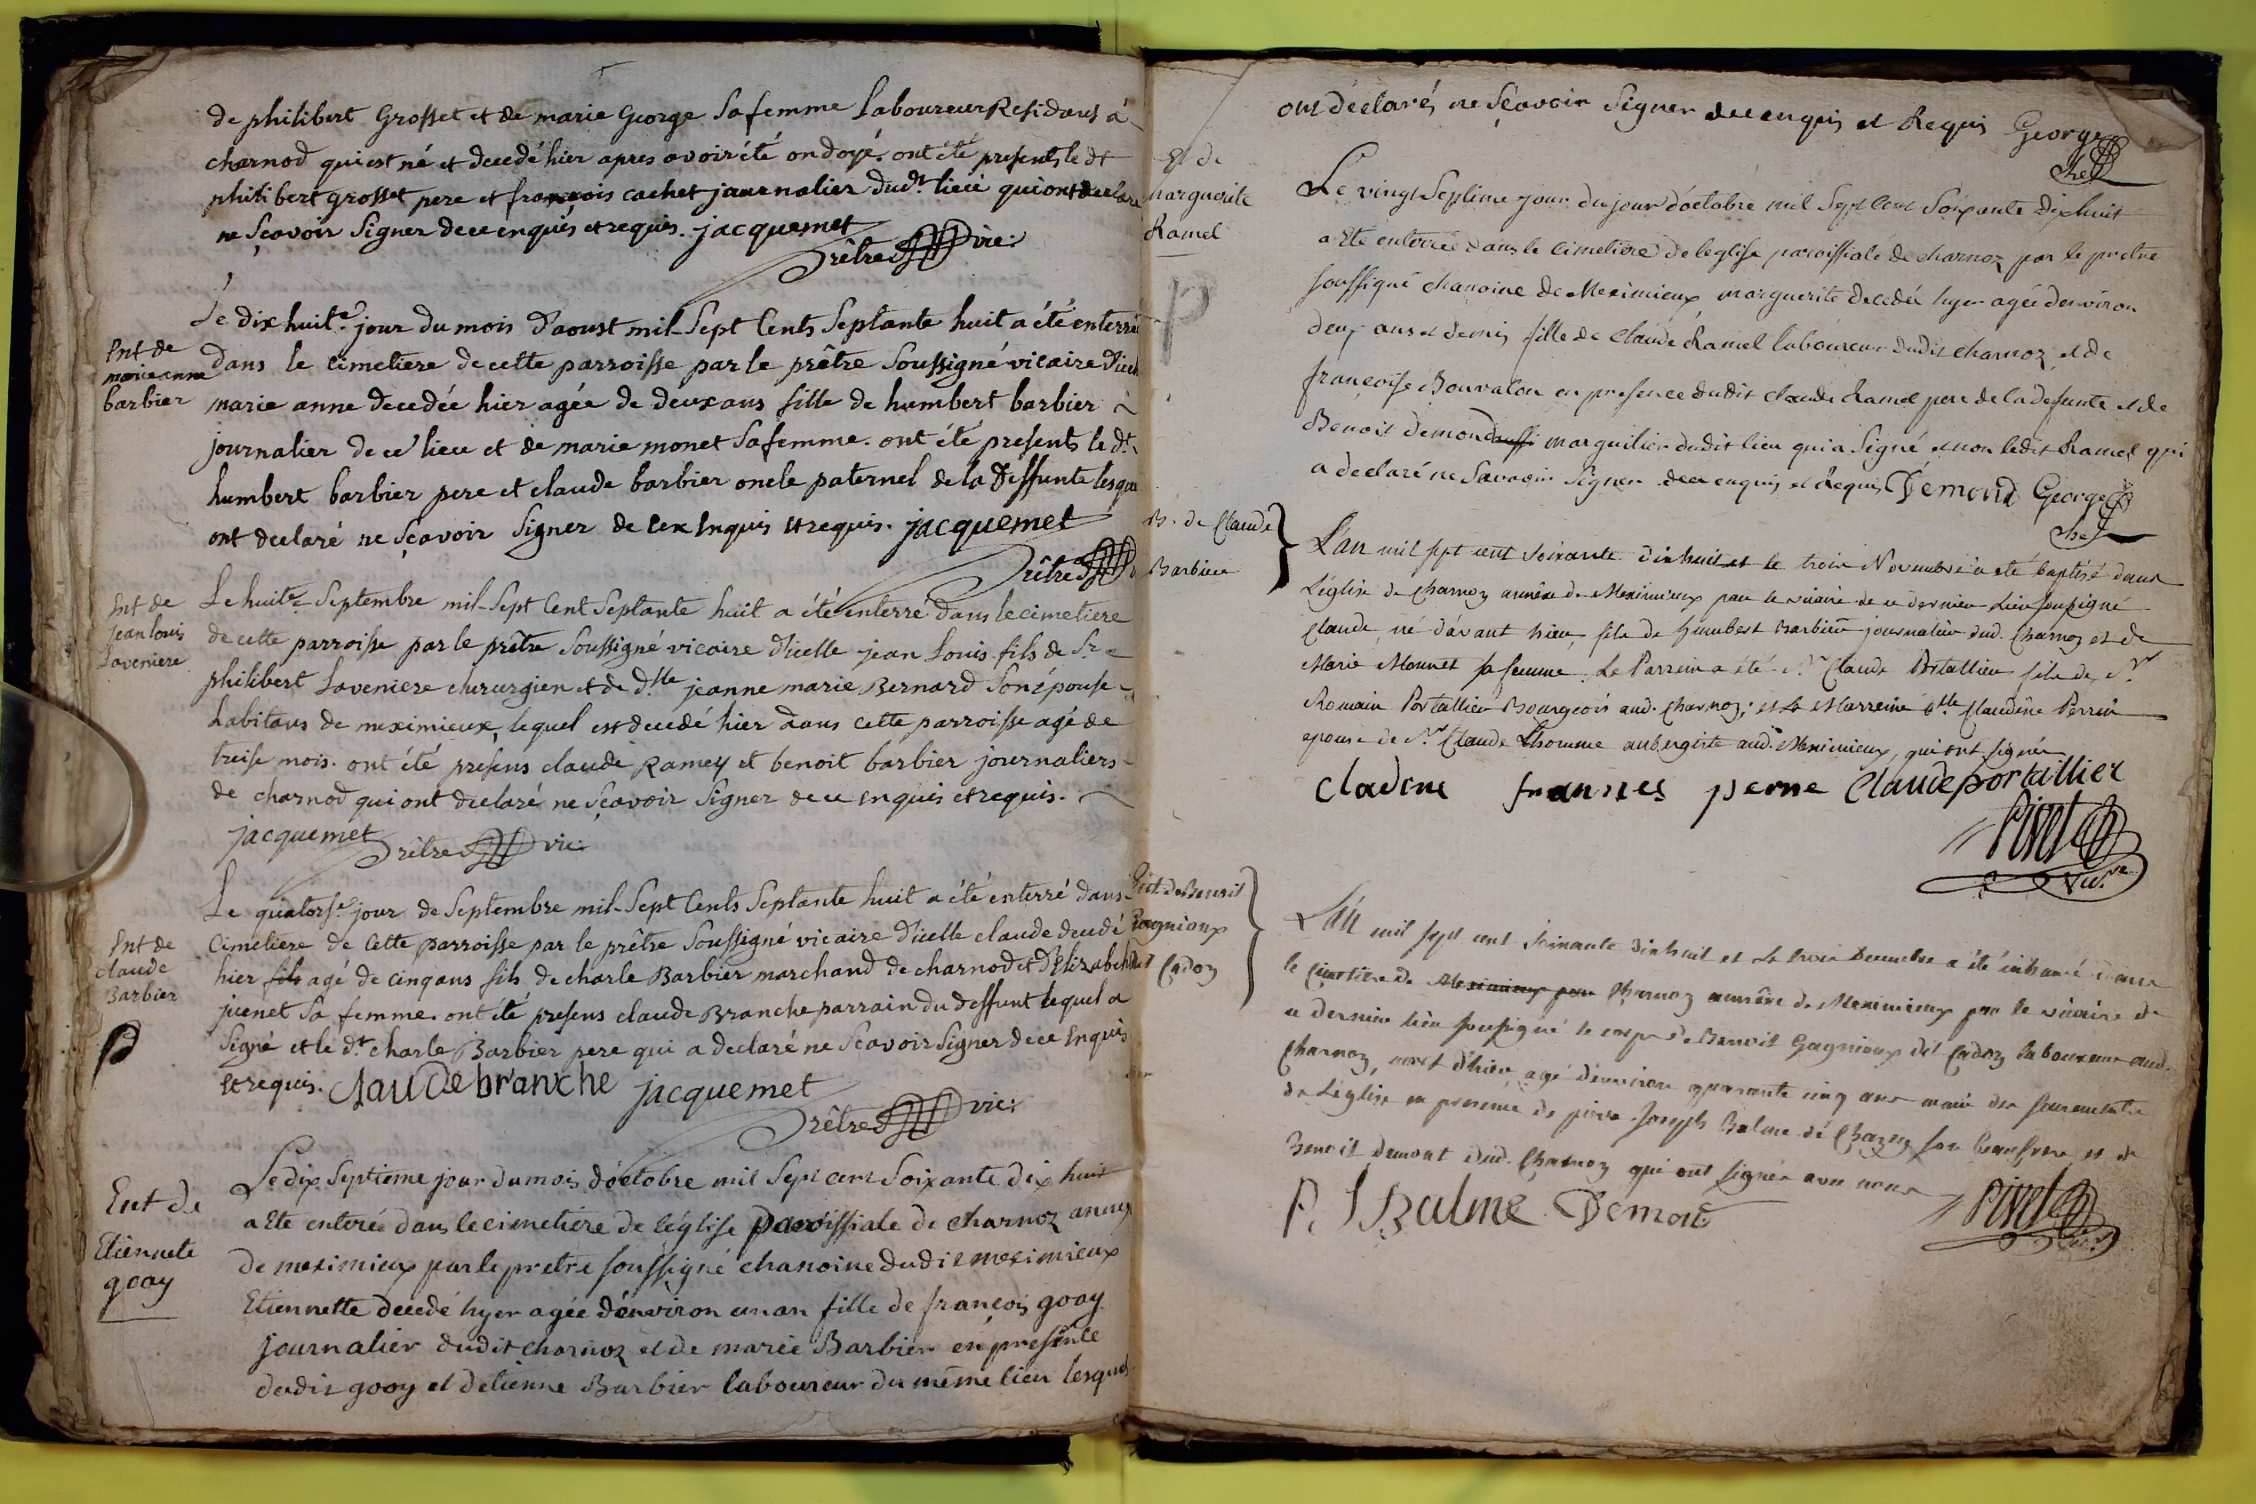 de philibert Grosset et de marie George sa femme laboureur Residans à
charnod qui est né et decedé hier apres avoir été ondoyé. ont été presents le dt
philibert grosset pere et françois cachet journalier dudt. lieu qui ont declaré
ne sçavoir signer de ce enquis et requis. jacquemet
Prêtre vic:
Ent de
marie anne
barbier
Le dix huite. jour du mois d'aoust mil Sept Cents Septante huit a été enterrée
dans le cimetiere de cette parroisse par le prêtre soussigné vicaire d'icelle
marie anne decedée hier agée de deux ans fille de humbert barbier
journalier de ce lieu et de marie monet sa femme. ont été presents le dt.
humbert barbier pere et claude barbier oncle paternel de la deffunte lesquels
ont declaré ne sçavoir signer de ce enquis et requis. jacquemet
Prêtre
Ent de
jean louis
Laveniere
Le huite. Septembre mil Sept Cent Septante huit a été enterré dans le cimetiere
de cette parroisse par le prêtre soussigné vicaire d'icelle jean Louis fils de Sr
philibert Laveniere chirurgien et de dlle jeanne marie Bernard son épouse
habitans de meximieux, lequel est decedé hier dans cette parroisse agé de
treise mois. ont été presens claude Ramey et benoit barbier journaliers
de charnod qui ont declaré ne sçavoir signer de ce enquis et requis.
jacquemet Prêtre vic:
Ent de
claude
Barbier
P
Le quatorse. jour de Septembre mil Sept Cents Septante huit a été enterré dans
Cimetiere de Cette parroisse par le prêtre soussigné vicaire d'icelle claude decedé
hier fils agé de cinq ans fils de charle Barbier marchand de charnod et d'Elizabeth
juenet sa femme. ont été presens claude Branche parrain du deffunt lequel a
signé et le dt. charle Barbier pere qui a declaré ne sçavoir signer de ce enquis
et requis. Claude branche jacquemet
Prêtre vic:
Ent de
Etiennete
goay
Le dix septieme jour du mois d'octobre mil sept cent soixante dix huit
a Ete enterée dans le cimetiere de l'église paroissiale de charnoz annexe
de meximieux par le pretre soussigné chanoine dudit meximieux
Etiennette decedé hyer agée d'environ un an fille de françois goay
journalier dudit charnoz et de marie Barbier en presence
dudit goay et d'etienne Barbier laboureur du même lieu lesquels
ont déclarés ne sçavoir signer de ce enquis et Requis George
che
Et de
marguerite
Ramel
P
Le vingt septieme jour du jour d'octobre mil sept cent soixante dix huit
a Ete enterrée dans le cimetiere de l'eglise paroissiale de charnoz par le pretre
soussigné chanoine de Meximieux marguerite decedée hyer agée d'environ
deux ans et demis fille de claude Ramel laboureur dudit charnoz et de
françoise Bouvalon en presence dudit claude Ramel pere de la defunte et de
Benoit Demond marguilier dudit lieu qui a signé et non ledit Ramel qui
a declaré ne savvoir signer de ce enquis et Requis Démond George
che
B. de Claude
Barbier
L'an mil sept cent soixante dix huit et le trois Novembre a été baptisé dans
L'église de Charnoz annexe de Meximieux par le vicaire de ce dernier lieu soussigné
Claude, né d'avant hier, fils de humbert Barbier journalier dud. Charnoz et de
Marie Monnet sa femme. Le Parrein a été Sr Claude Portallier fils de Sr
Romain Portallier Bourgeois aud. Charnoz; et La Marreine dlle Claudine Perrin
epouse de Sr Claude Lhomme aubergiste aud. Meximieux, qui ont signés
Cladine franses perne Claude portallier
Pivet
vic.re
Ent. de Benoit
Gagnioux
dit Cadoz
L'an mil sept cent soixante dix huit et le trois Decembre a été inhumé dans
le Cimetiere de Meximieux par Charnoz annexe de Meximieux par le vicaire de
ce dernier lieu soussigné le corps de Benoit Gagnioux dit Cadoz laboureur aud.
Charnoz, mort d'hier, agé d'environ quarante cinq ans muni des sacrements
de L'église en presence de pierre Joseph Balme de Chazey son beaufrere et de
Benoit Demont dud. Charnoz qui ont signés avec nous
P. J Balme Demond Pivet
vic.